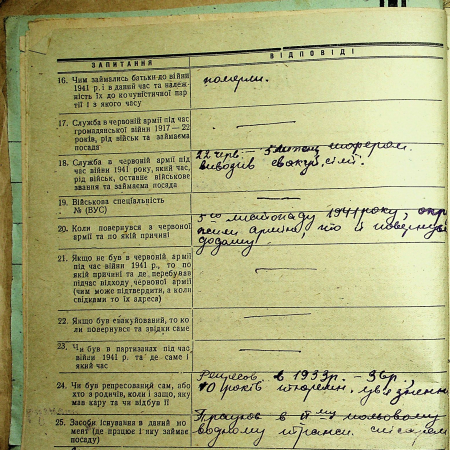 ЗАПИТАННЯ
ВІДПОВІДІ
16. Чим займались батьки до війни
1941 р. і в даний час та належ-
ність їх до комуністичної пар-
тії і з якого часу
померли.
17. Служба в червоній армії під час
громадянської війни 1917—22
років, рід військ та займаєма
посада
—
18. Служба в червоній армії під
час війни 1941 року, який час,
рід військ, останнє військове
звання та займаєма посада
22 черв. — 5 шофером.
виводив евакуй. сім'ї.
19. Військова спеціальність
№ (ВУС)
—
20. Коли повернувся з червоної
армії та по якій причині
5го листопаду 1941 року,
армію, що й повернувся
додому.
21. Якщо не був в червоній армії
під час війни 1941 р., то по
якій причині та де перебував
підчас відходу червоної армії
(чим може підтвердити, а коли
свідками то їх адреса)
—
22. Якщо був евакуйований, то ко-
ли повернувся та звідки саме
—
23. Чи був в партизанях під час
війни 1941 р. та де саме і
який час
—
24. Чи був репресований сам, або
хто з родичів, коли і защо, яку
мав кару та чи відбув її
Репресов. в 1933р. —
10 років
25. Засоби існування в даний мо-
мент (де працює і яку займає
посаду)
Працюв в
водному